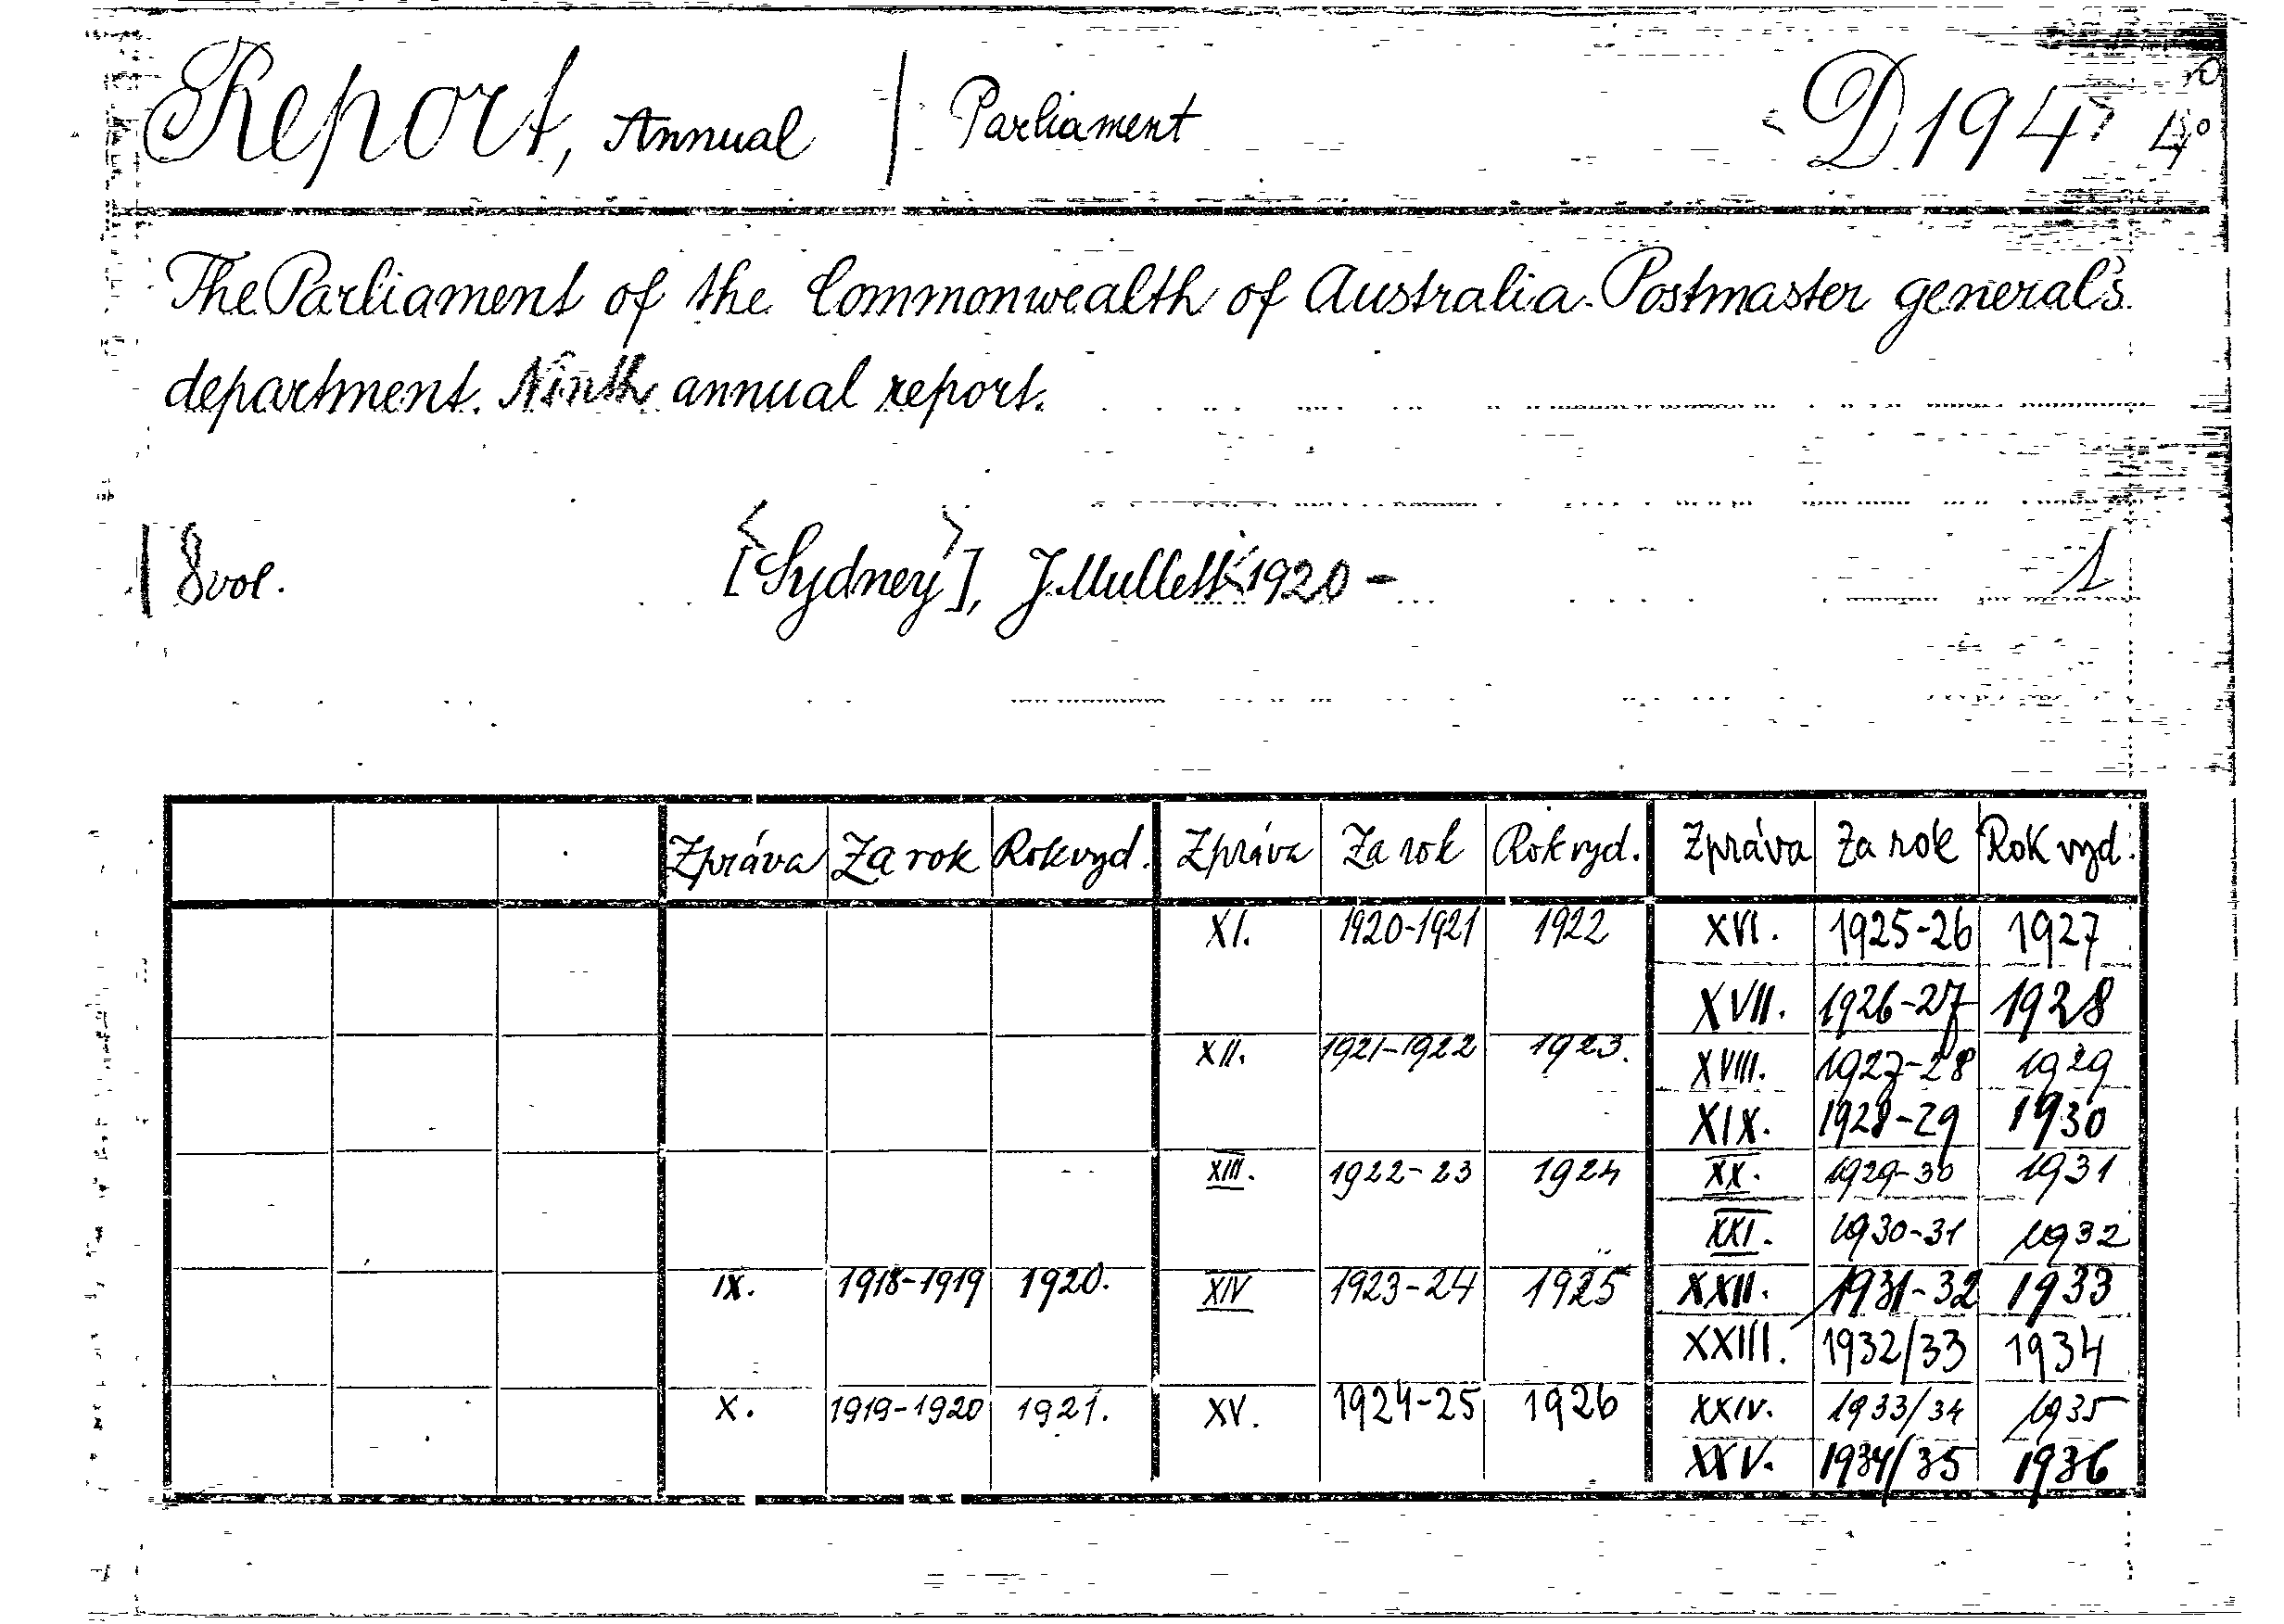 Report, Annual / Parliament D 194 4°
The Parliament of the Commonwealth of Australia. Postmaster general's
department. Ninth annual report.
8 vol. [Sydney], J. Mullett 1920 - 1
Zpráva Za rok Rok vyd. Zpráva Za rok Rok vyd. Zpráva Za rok Rok vyd.
XI. 1920-1921 1922 XVI. 1925-26 1927
XVII. 1926-27 1928
XII. 1921-1922 1923. XVIII. 1927-28 1929
XIX. 1928-29 1930
XIII. 1922-23 1924 XX. 1929-30 1931
XXI. 1930-31 1932
IX. 1918-1919 1920. XIV 1923-24 1925 XXII. 1931-32 1933
XXIII. 1932/33 1934
X. 1919-1920 1921. XV. 1924-25 1926 XXIV. 1933/34 1935
XXV. 1934/35 1936